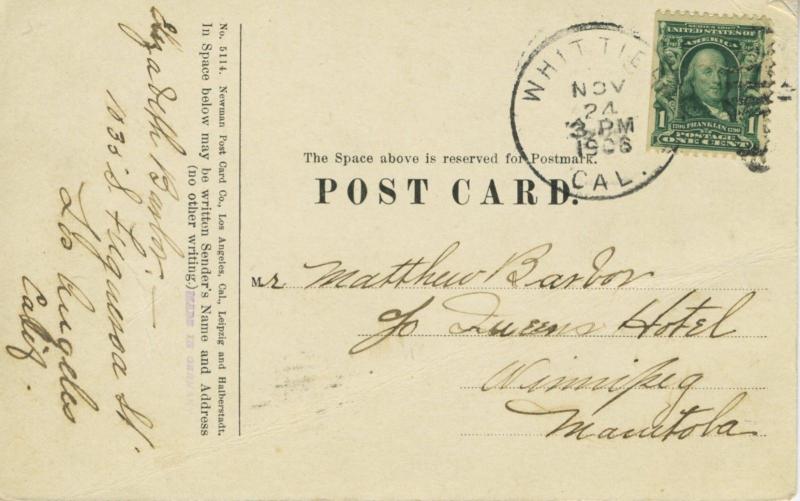 Elizabeth Barbor.—
1033 S. Figueroa St.
Los Angeles
Calif.
In Space below may be written Sender's Name and Address
(no other writing.)
MADE IN
No. 5114. Newman Post Card Co., Los Angeles, Cal., Leipzig and Halberstadt.
WHITTIER
NOV
24
3 PM
1906
CAL.
SERIES 1902
UNITED STATES OF
AMERICA
1 1
1706 FRANKLIN 1790
POSTAGE
ONE CENT
The Space above is reserved for Postmark.
POST CARD.
Mr Matthew Barbor
c/o Queens Hotel
Winnipeg
Manitoba